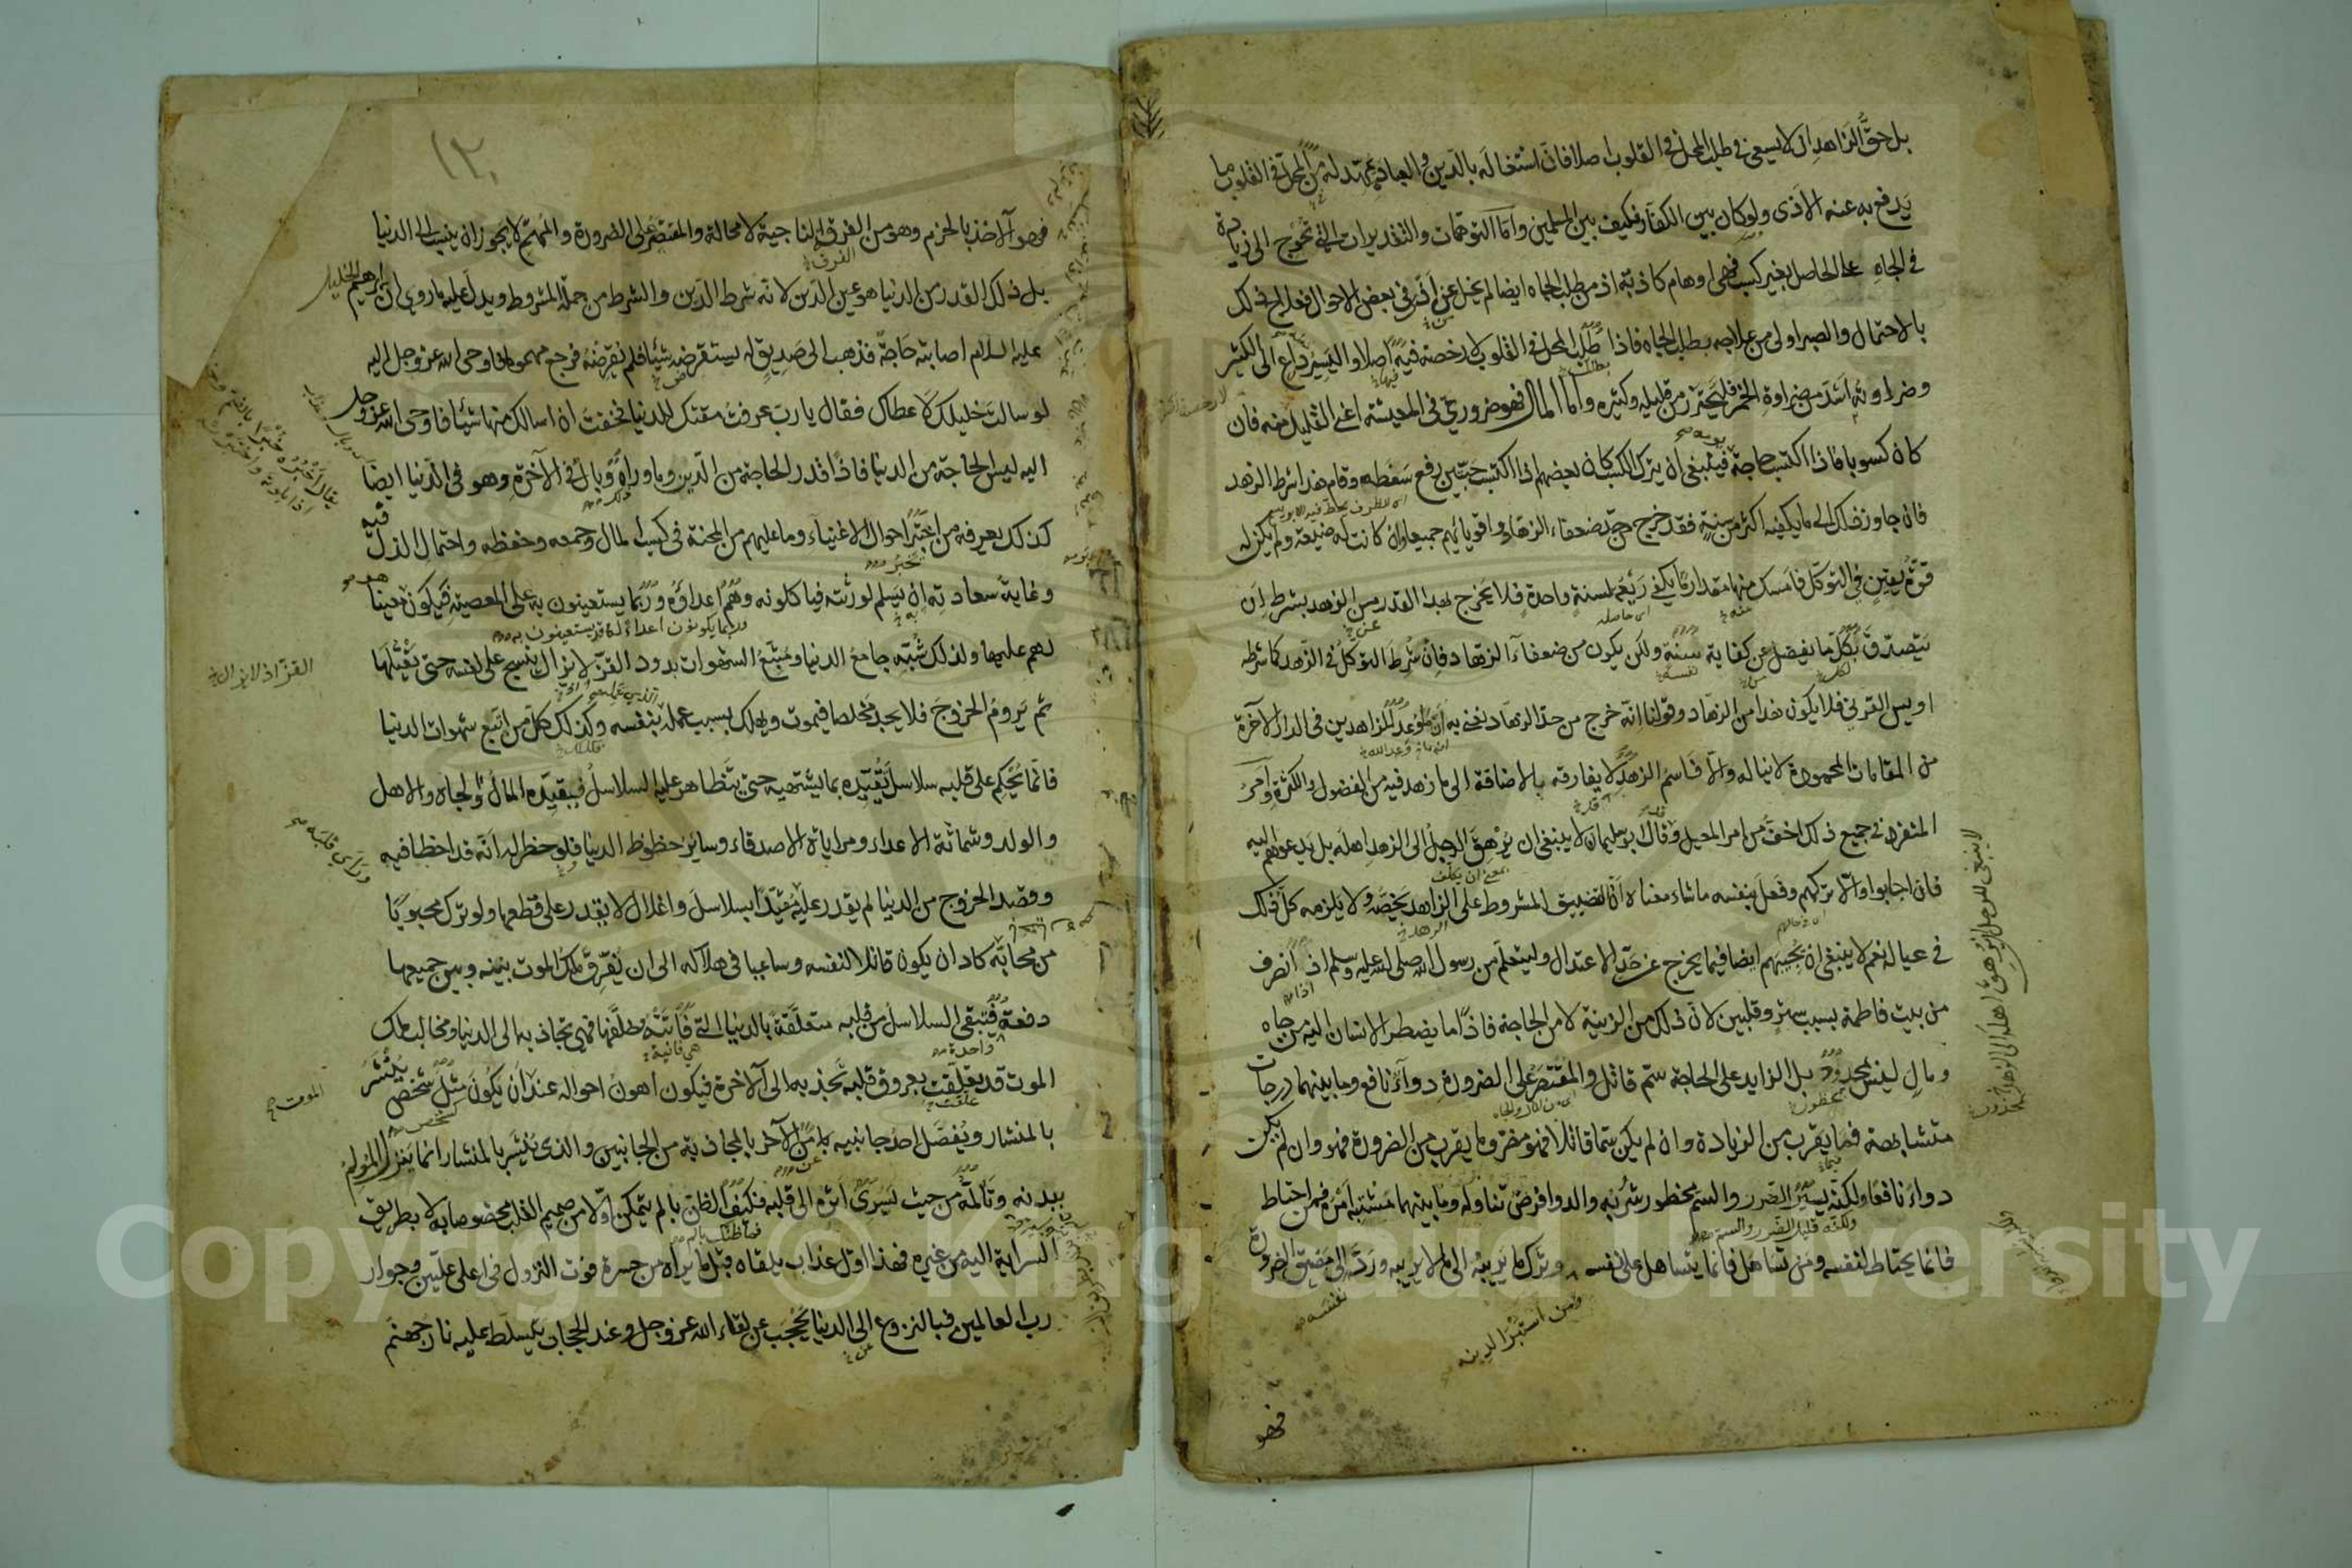 بل حق الزاهد ان لا يسعى في طلب المحل في القلوب اصلا فان اشتغاله بالدين والعبادة يمهد له من المحل في القلوب ما
يدفع به عنه الاذى ولو كان بين الكفار فكيف بين المسلمين واما التوهمات والتقديرات التي تخرج الى زيادة
في الجاه على الحاصل بغير كسب فهي اوهام كاذبة اذ من طلب الجاه ايضا لم يخل عن اذى في بعض الاحوال فعلاج ذلك
بالاحتمال والصبر اولى من علاجه بطلب الجاه فاذا طلب المحل في القلوب لا رخصة فيه اصلا واليسير داع الى الكثير
وضراوته اشد من ضراوة الخمر فليحترز من قليله وكثيره واما المال فهو ضروري في المعيشة اعني القليل منه فان
كان كسوبا فاذا اكتسب حاجة يومه فينبغي ان يترك الكسب كان بعضهم اذا اكتسب حبتين رفع سفطه وقام هذا شرط الزهد
فان جاوز ذلك الى ما يكفيه اكثر من سنة فقد خرج عن حد ضعفاء الزهاد واقويائهم جميعا وان كانت له ضيعة ولم يكن له
قوة يقين في التوكل فامسك منها مقدار ما يكفي ريعه لسنة واحدة فلا يخرج بهذا القدر من الزهد بشرط ان
يتصدق بكل ما يفضل عن كفاية سنته ولكن يكون من ضعفاء الزهاد فان شرط التوكل في الزهد كما شرطه
اويس القرني فلا يكون هذا من الزهاد وقولنا انه خرج من حد الزهاد نعني به ان ما وعد للزاهدين في الدار الآخرة
من المقامات المحمودة لا يناله والا فاسم الزهد لا يفارقه بالاضافة الى ما زهد فيه من الفضول والكثرة وامر
المنفرد في جميع ذلك اخف من امر المعيل وقال ابو سليمان لا ينبغي ان يرهق الرجل الى الزهد اهله بل يدعوهم اليه
فان اجابوا والا تركهم وفعل بنفسه ما شاء معناه ان التضييق المشروط على الزاهد يخصه ولا يلزمه كل ذلك
في عياله نعم لا ينبغي ان يجيبهم ايضا فيما يخرج عن حد الاعتدال وليتعلم من رسول الله صلى الله عليه وسلم اذ انصرف
من بيت فاطمة بسبب ستر وقلبين لان ذلك من الزينة لا من الحاجة فاذا ما يضطر الانسان اليه من جاه
ومال ليس بمحذور بل الزايد على الحاجة سم قاتل والمقتصر على الضرورة دواء نافع وما بينهما درجات
متشابهة فما يقرب من الزيادة وان لم يكن سما قاتلا فهو مضر وما يقرب من الضرورة فهو وان لم يكن
دواء نافعا ولكنه يسير الضرر والسم محظور شربه والدوا فرض تناوله وما بينهما مشتبه امره فمن احتاط
فانما يحتاط لنفسه ومن تساهل فانما يتساهل على نفسه وترك ما يريبه الى ما لا يريبه ورد الى مضيق الضرورة
ومن استبرا لدينه
نفسه
فهو
لا ينبغي للرجل ان يرهق اهله الى الزهد
١٢٠
فهو الآخذ بالحزم وهو من الفرقة الناجية لا محالة والمقتصر على الضرورة والمهم لا يجوز ان ينسب الى الدنيا
بل ذلك القدر من الدنيا هو عين الدين لانه شرط الدين والشرط من جملة المشروط ويدل عليه ما روي ان ابرهيم الخليل
عليه السلام اصابته حاجة فذهب الى صديق له يستقرضه شيئا فلم يقرضه فرجع مهموما فاوحى الله عز وجل اليه
لو سالت خليلك لاعطاك فقال يا رب عرفت مقتك للدنيا فخفت ان اسالك منها شيئا فاوحى الله عز وجل
اليه ليس الحاجة من الدنيا فاذا قدر الحاجة من الدين وما وراه وبال في الآخرة وهو في الدنيا ايضا
كذلك يعرفه من اختبر احوال الاغنياء وما عليهم من المحنة في كسب المال وجمعه وحفظه واحتمال الذل فيه
وغاية سعادته ان يسلم لورثته فياكلونه وهم اعداؤه وربما يستعينون به على المعصية فيكون هو معينا
لهم عليها ولذلك شبه جامع الدنيا ومتبع الشهوات بدود القز لا يزال ينسج على نفسه حتى يقتلها
القز اذ لا يزال
ثم يروم الخروج فلا يجد مخلصا فيموت ويهلك بسبب عمله بنفسه وكذلك كل من اتبع شهوات الدنيا
فانما يحكم على قلبه سلاسل تقيده بما يشتهيه حتى يتظاهر عليه السلاسل فيقيده المال والجاه والاهل
والولد وشماتة الاعداء ومراياة الاصدقاء وساير حظوظ الدنيا فلو خطر له انه قد اخطا فيه
وقصد الخروج من الدنيا لم يقدر عليه مقيدا بسلاسل واغلال لا يقدر على قطعها ولو ترك محبوبا
من محابه كاد ان يكون قاتلا لنفسه وساعيا في هلاكه الى ان يفرق ملك الموت بينه وبين جميعها
دفعة فتبقى السلاسل من قلبه متعلقة بالدنيا التي فاتته وخلفها فهي تجاذبه الى الدنيا ومخالب ملك
الموت قد تعلقت بعروق قلبه تجذبه الى الآخرة فيكون اهون احواله عند ان يكون مثل شخص ينشر
الموت
بالمنشار ويفصل احد جانبيه من الآخر بالمجاذبة من الجانبين والذي ينشر بالمنشار انما ينزل المولم
ببدنه وتالمه من حيث يسري اثره الى قلبه فكيف الظن بالم يتمكن اولا من صميم القلب مخصوصا به لا بطريق
السراية اليه من غيره فهذا اول عذاب يلقاه قبل ما يراه من حسرة فوت النزول في اعلى عليين وجوار
رب العالمين فبالنزوع الى الدنيا يحجب عن لقاء الله عز وجل وعند الحجاب يتسلط عليه نار جهنم
Copyright © King Saud University